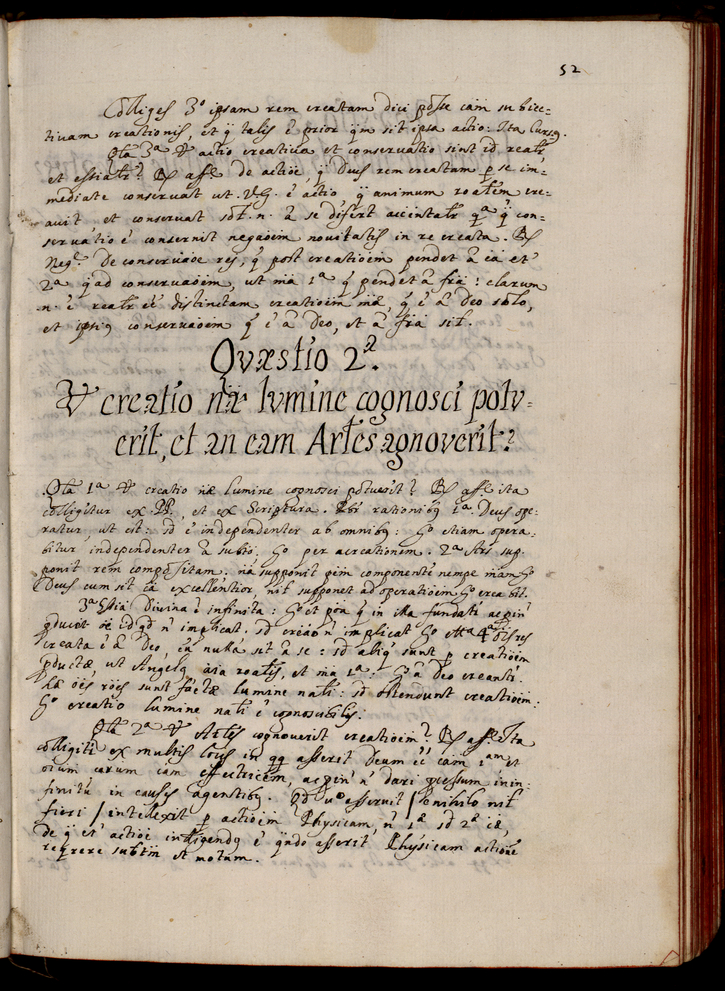 52
Colliges 3º ipsam rem creatam dici posse cām subiec-
tivam creationis, et q̄ talis ē prior q̄m sit ipsa actio: Ita Cursq.
Qta 3ª V actio creativa et conservatio sint id realtr̄
et essialtr̄? R aff.e De actiōe, q̄ Deus rem creatam p se im-
mediate conservat ut V.G. ē actio q̄ animum roālem cre-
avit et conservat sōt. n. ā se differt accintaltr̄ qª q̄ con-
servatio ē consernit negaōem novitatis in re creata. R
Neg.e De conservaōe rej, q̄ post creatiōem pendet ā cā et
2ª q̄ad conservaōem, ut mā 1ª q̄ pendet ā frā: clarum
n. ē realtr̄ eē distinctam creatiōem māe, q̄ ē ā Deo solo,
et ipsiq conservaōem q̄ ē ā Deo, et ā frā sit.
Qvæstio 2ª.
V creatio nāe lvmine cognosci potv-
erit, et an eam Artes agnoverit?
Qta 1ª V creatio nāe lumine cognosci potuerit? R aff.e ita
colligitur ex PP. et ex Scriptura. Pbr̄ rationibq 1ª. Deus ope-
ratur, ut est: sd ē independenter ab omnibq: Go etiam opera-
bitur independenter ā subto. Go per acreationem. 2ª Ars sup-
ponit rem compositam. nā supponit pim componenti nempe mām Go
Deus cum sit cā excellentior, nit supponet ad operatiōem Go crea bit.
3ª Estiā Divina ē infinita: Go et pōa q̄ in illa fundatr̄ ac pin
pducit ōe id qd n̄ implicat. sd creāo n̄ implicat Go 4ª ōis res
creata ē ā Deo, cū nulla sit ā se: sd aliq̄ sunt p creatiōem
pductæ ut Angelq āīa roālis, et mā 1ª: Go ā Deo creantr̄.
hæ ōēs rōes sunt factæ lumine nali: sd ostendunt creatiōem:
Go creatio lumine nali ē cognoscibilis.
Qta 2ª V Artles cognoverit creatiōem? R aff.e Ita
colligitr̄ ex multis locis in qq asserit Deum ēē cām 1am et
oīum earum cām effectricem, ac pin n̄ dari pcessum in in-
finitū in causis agentibq. Qd vº asseruit / ex nihilo nit
fieri / intellexit p actiōem Physicam, n̄ 1æ sd 2æ cæ,
de q̄ et actiōe intelligendq ē q̄ndo asserit Physicam actiōne
reqrere subtm et motum.